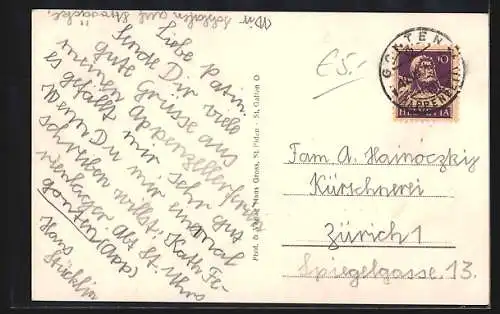 (Wir schlafen auf Strosäcke.)
Liebe Patin.
Sende Dir viele
gute Grüsse aus
meinen Appenzellerferien
es gefällt mir sehr gut
Wenn Du mir einmal
schreiben willst. Kath. Fe-
rienlager Abt. St.
Gonten (App)
Hans
Stücklin
Phot. & Hans Gross, St. Fiden - St. Gallen O
£5.-
GONTEN
(APPENZELL)
10
HELVETIA
Fam. A. Hainoczky
Kürschnerei
Zürich 1
Spiegelgasse 13.